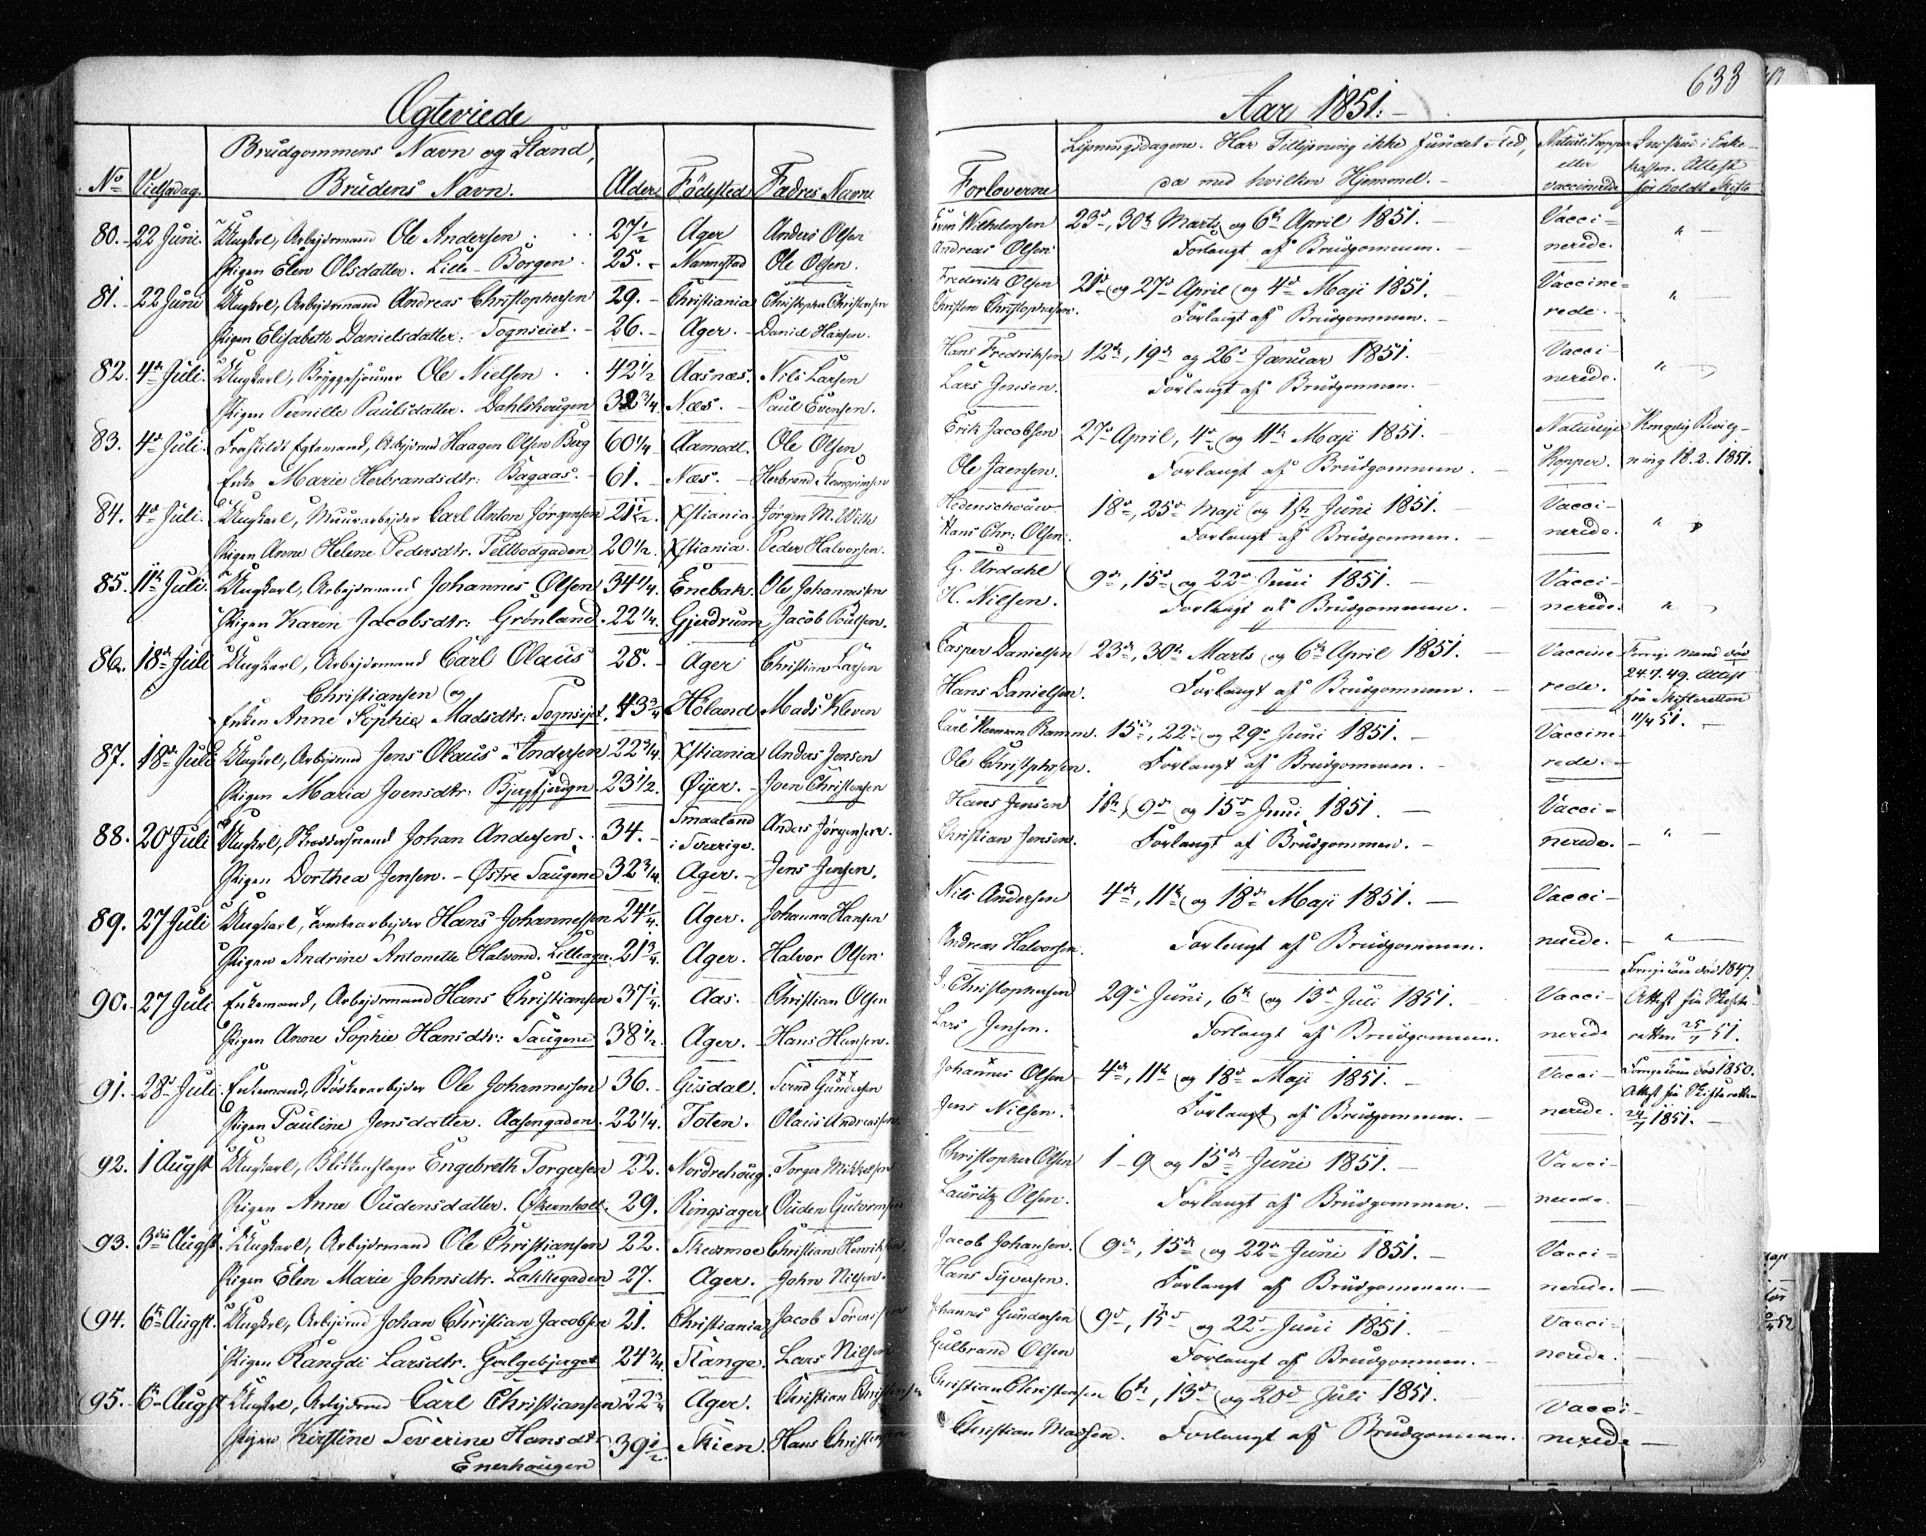 Ægteviede
Aar 1851.
633
No
Vielsesdag.
Brudgommens Navn og Stand,
Brudens Navn.
Alder
Födested
Fadres Navne
Forloverne
Lysningsdagene. Har Tillysning ikke fundet Sted,
da med hvilken Hjemmel.
Naturl. Kopper
eller
vaccinerede
80. 22 Juni. Ungkarl, Arbejdsmand Ole Andersen 27½ Ager Anders Olsen Even Wilhelmsen 23d, 30te Marts og 6te April 1851. Vacci-
Pigen Elen Olsdatter. Lille-Borgen 25. Nannestad Ole Olsen. Andreas Olsen Forlangt af Brudgommen. nerede.
81. 22 Juni Ungkrl, Arbejdsmand Andreas Christophersen 29. Christiania Christopher Christensen Frederik Olsen 21de og 27de April og 4de Maji 1851. Vaccine-
Pigen Elisabeth Danielsdatter. Tognseiet. 26. Ager. Daniel Hansen. Christen Christophersen. Forlangt af Brudgommen. rede.
82. 4de Juli. Ungkarl, Bryggesjouer Ole Nielsen 42½ Aasnæs. Nils Larsen Hans Fredriksen 12te, 19de og 26de Januar 1851. Vacci-
Pigen Pernille Paulsdatter. Dahlshougen 32¾ Næs. Paul Evensen. Lars Jensen. Forlangt af Brudgommen. nerede.
83. 4de Juli. Fraskildt Egtemand, Arbejdsmd Haagen Olsen Berg 60¼ Aamodt. Ole Olsen Erik Jacobsen 27de April, 4de og 11te Maji 1851. Naturlige Kongelig Bevilg-
Enke Marie Herbrandsdtr: Bagaas. 61. Næs. Herbrand Ole Jaensen. Forlangt af Brudgommen. Kopper. ning 18.2.1851.
84. 4de Juli. Ungkarl, Muurarbejder Carl Anton Jörgensen 21½. Xstiania Jörgen M. Wilh. Hedenschouw 18de, 25de Maji og 1ste Juni 1851. Vacci-
Pigen Anne Helene Pedersdtr. Tellbodgaden 20½. Xstiania. Peder Halvorsen. Hans Chr: Olsen. Forlangt af Brudgommen. nerede.
85. 11te Juli. Ungkarl, Arbejdsmand Johannes Olsen 34¼ Enebak. Ole Johannesen G. Urdahl 9de, 15de og 22de Juni 1851. Vacci-
Pigen Karen Jacobsdtr: Grönland. 22¼. Gjerdrum. Jacob Poulsen. H. Nilsen. Forlangt af Brudgommen. nerede.
86. 18de Juli Ungkarl, Arbejdsmand Carl Olaus 28. Ager Christian Larsen Casper Danielsen 23de, 30te Marts og 6te April 1851. Vaccine Forrige mand död
Christiansen og Hans Danielsen. Forlangt af Brudgommen. rede. 24.7.49. Attest
Enken Anne Sophie Madsdtr: Tognsejet. 43¾ Höland Mads Kleven fra Skifteretten
11/4 51.
87. 18de Juli Ungkrl, Arbejdsmd Jens Olaus Andersen 22¾. Xstiania Anders Jensen Carl Herman Ramm. 15de, 22de og 29de Juni 1851. Vaccine-
Pigen Maria Joensdtr: Bjergfjerdgn. 23½. Øyer. Joen Christensen Ole Christophersen. Forlangt af Brudgommen. rede.
88. 20de Juli Ungkrl, Skreddersvend Johan Andersen. 34. Smaaland i Sverige. Anders Jörgensen. Hans Jensen 1ste, 9de og 15de Juni 1851. Vacci-
Pigen Dorthea Jensen. Østre Saugene 32¾. Ager. Jens Jensen. Christian Jensen. Forlangt af Brudgommen. nerede.
89. 27 Juli Ungkarl, Tomtearbejder Hans Johannessen 24¼. Ager. Johannes Hansen Nils Andersen 4de, 11te og 18de Maji 1851. Vacci-
Pigen Andrine Antonette Halvorsd. Lilleager. 21¾ Ager. Halvor Olsen. Andreas Halvorsen. Forlangt af Brudgommen. nerede.
90. 27 Juli Enkemand, Arbejdsmand Hans Christiansen 37¼. Aas. Christian Olsen J. Christophersen 29de Juni, 6te og 13de Juli 1851. Vacci- Forrige Kone död 1847.
Attest fra Skifte-
Pigen Anne Sophie Hansdtr: Saugene 38½. Ager. Hans Hansen. Lars Jensen. Forlangt af Brudgommen. nerede retten 25/7 51.
91. 28de Juli. Enkemand, Bödkerarbejder Ole Johannessen 36. Gusdal. Svend Gundersen Johannes Olsen 4de, 11te og 18de Maji 1851. Vacci- Forrige Kone död 1850.
Attest fra Skifteretten
Pigen Pauline Jensdatter. Aasengaden. 22¼. Toten. Olaus Andreassen Jens Nilsen. Forlangt af Brudgommen. nerede. 24/7 1851.
92. 1 Augst Ungkarl, Blikkenslager Engebreth Torgersen 22. Nordrehoug. Torger Mikkelsen Christopher Olsen 1-9 og 15de Juni 1851. Vacci-
Pigen Anne Oudensdatter. Økernholt. 29. Ringsager Ouden Gutormsen Lauritz Olsen. Forlangt af Brudgommen. nerede.
93. 3die Augst. Ungkarl, Arbejdsmand Ole Christiansen 22. Skedsmoe Christian Henriksen Jacob Johansen. 9de, 15de og 22de Juni 1851. Vacci-
Pigen Elen Marie Johnsdtr. Lakkegaden 27. Ager. John Nilsen. Hans Syversen. Forlangt af Brudgommen. nerede.
94. 6te Augst. Ungkrl, Arbejdsmd Johan Christian Jacobsen 21. Christiania Jacob Johannes Gundersen 9de, 15de og 22de Juni 1851. Vacci-
Pigen Rangdi Larsdtr. Galgebjerget 24¾. Stange. Lars Nilsen Gulbrand Olsen Forlangt af Brudgommen. nerede.
95. 6te Augst Ungkrl, Arbejdsmd Carl Christiansen 22¾ Ager. Christian Christensen Christian Christensen 6te, 13de og 20de Juli 1851. Vacci-
Pigen Kirstine Severine Hansdtr 39½ Skien. Hans Christensen Christian Madsen. Forlangt af Brudgommen. nerede
Enerhaugen